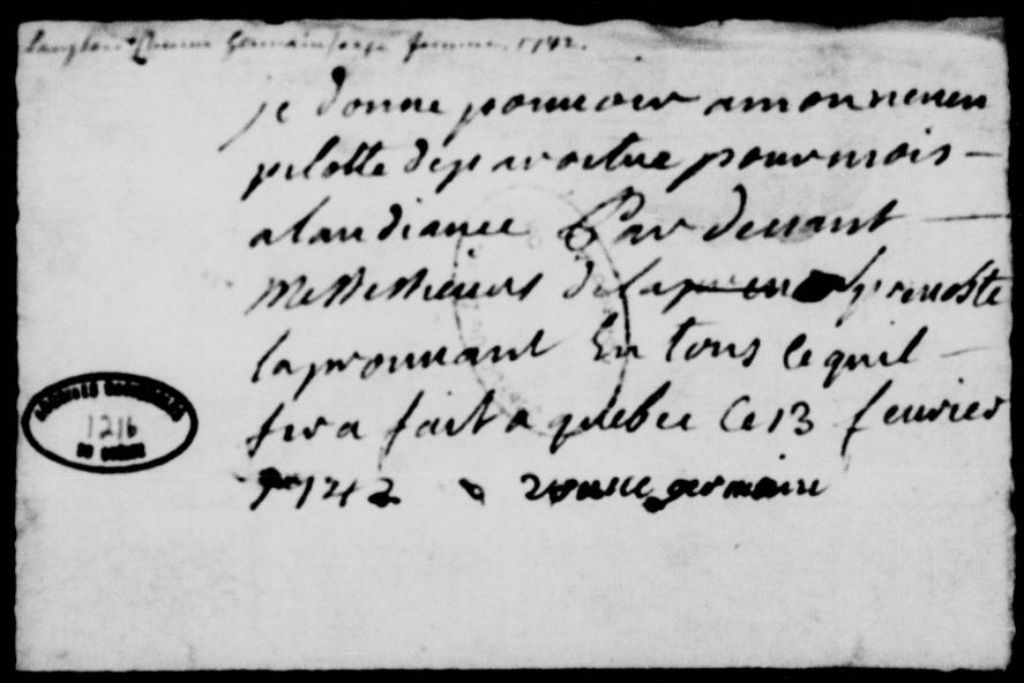 Germain femme. 1742.
je donne pouvoir a mon neveu
pilotte de paroitre pour mois
a laudiance Par devant
Messieurs de la prevoste
laprouvant En tous ce quil
fera fait a quebec Ce 13 fevrier
1742 germaine
ARCHIVES
1216
DU QUÉBEC